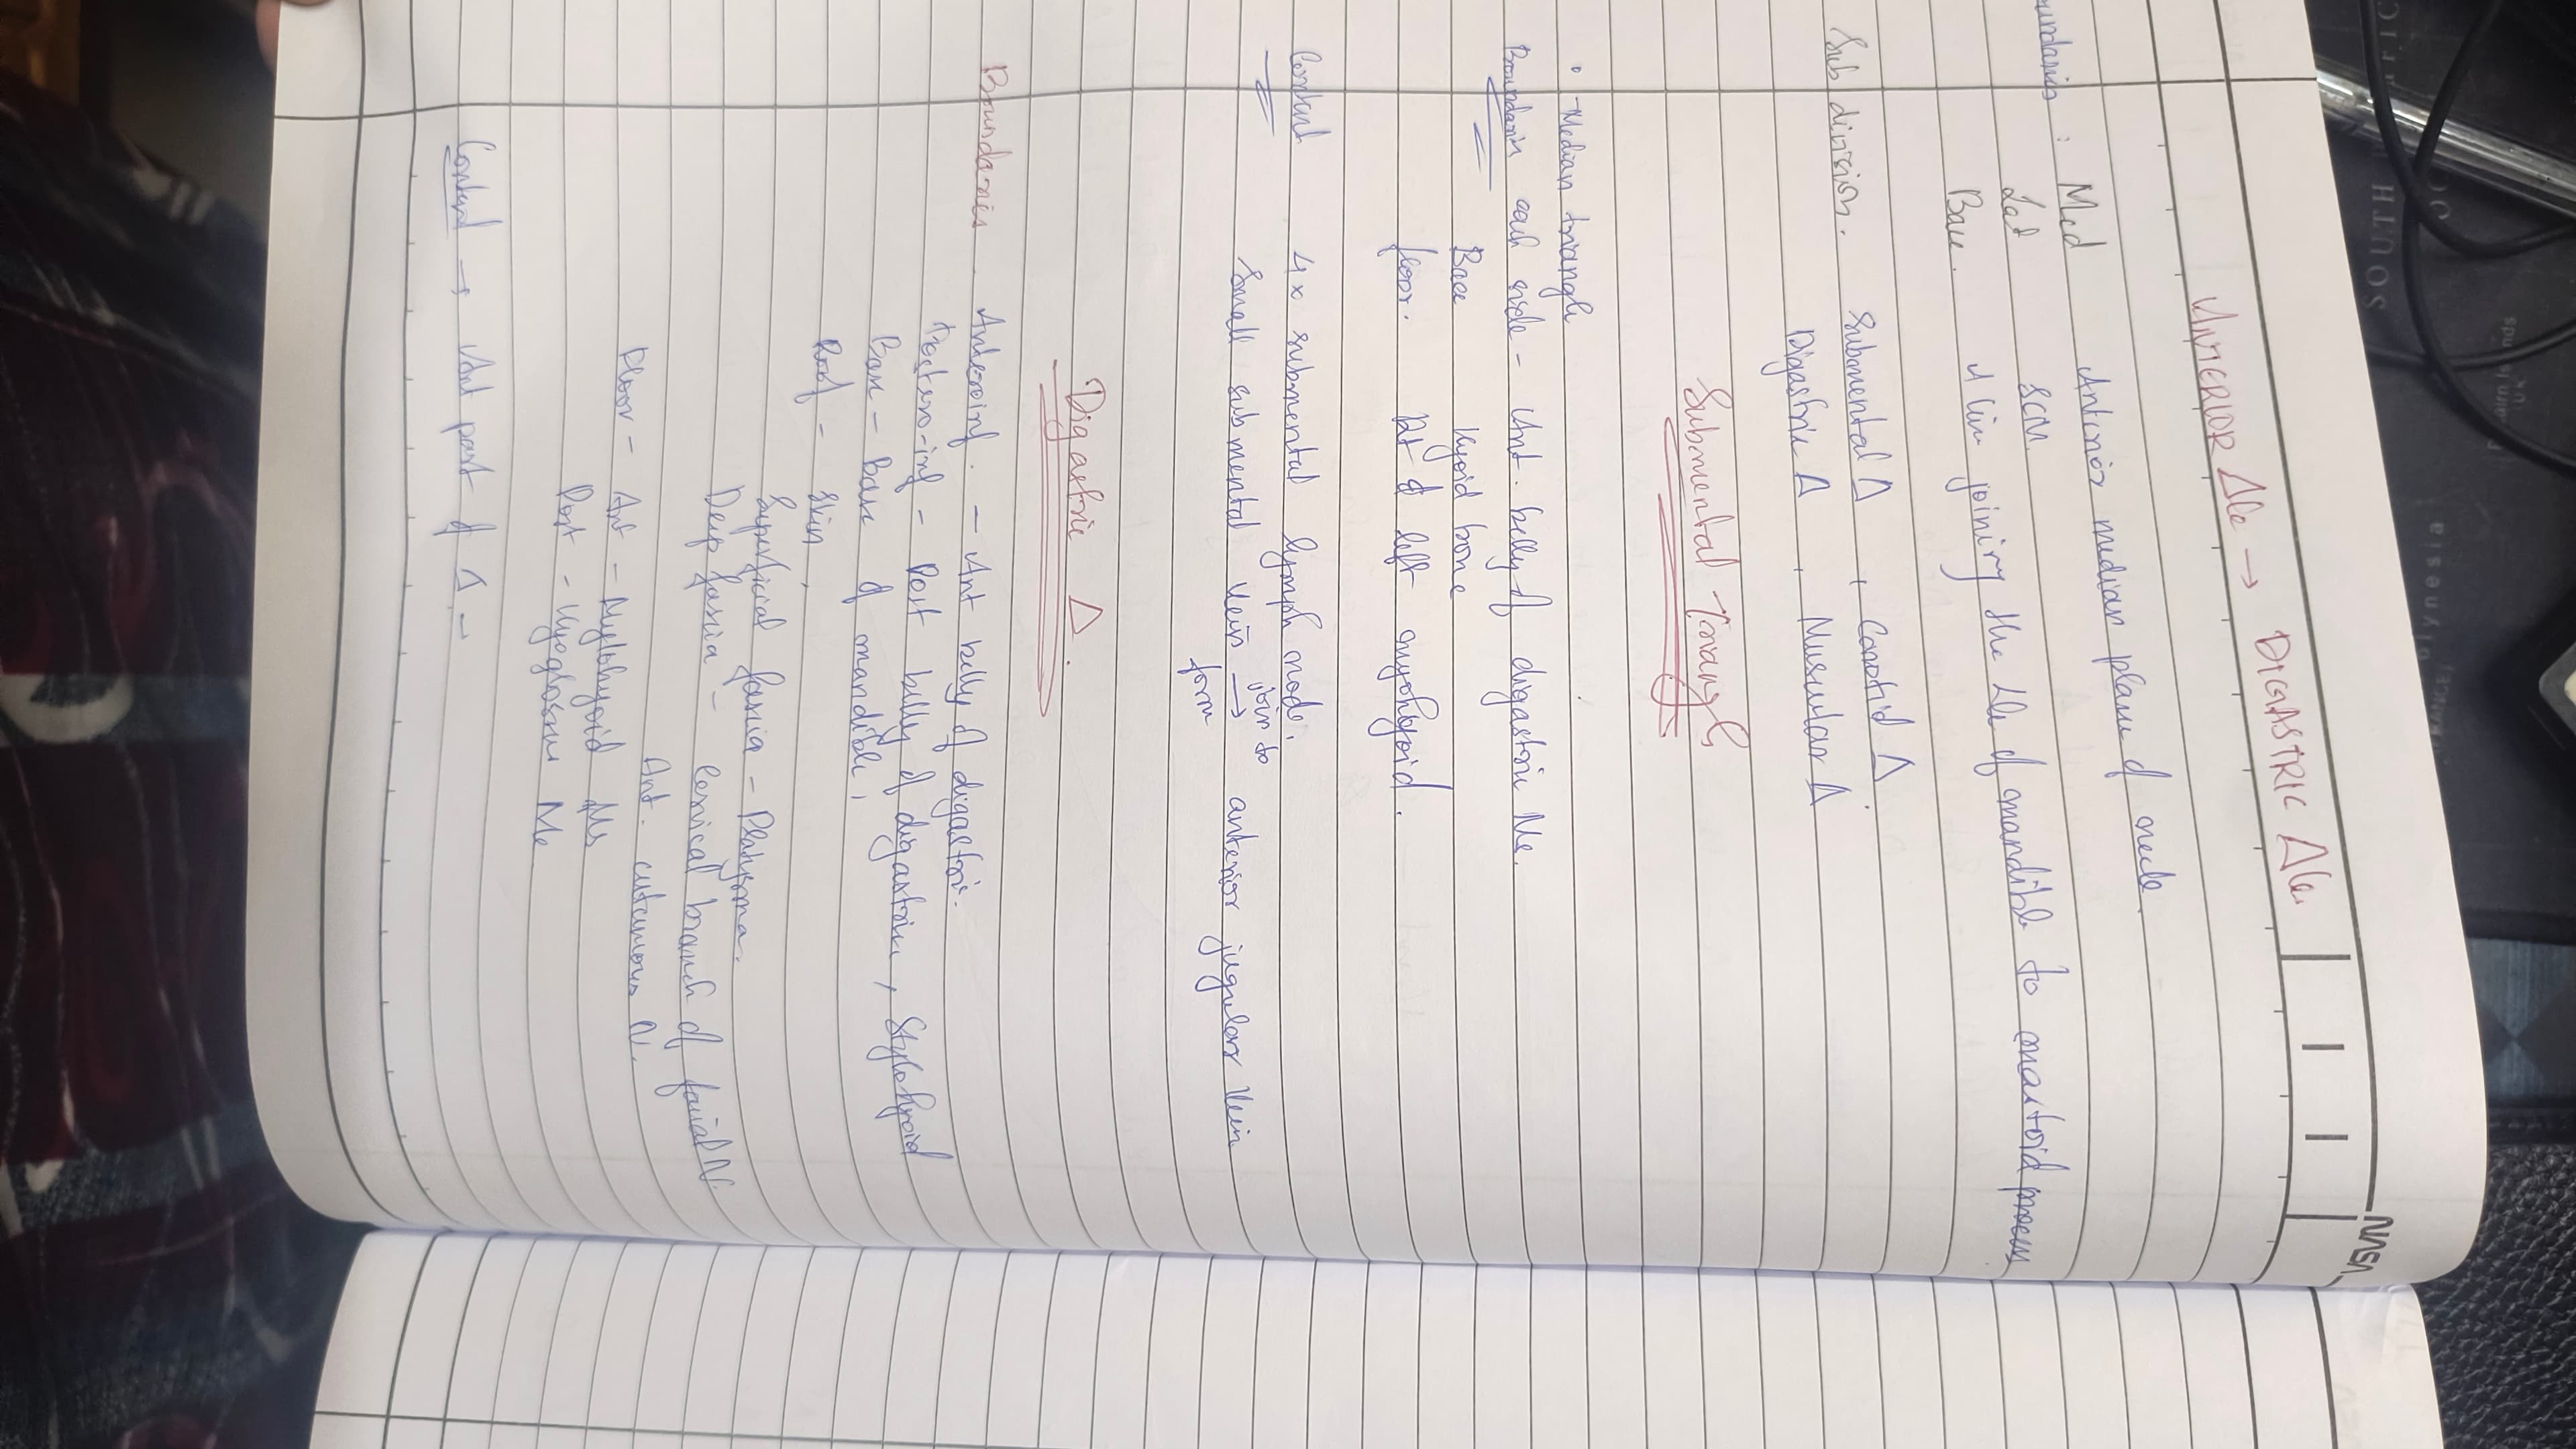 ANTERIOR Δle → DIGASTRIC Δle.
undaries : Med Anterior median plane of neck.
Lat SCM.
Base. A line joining the L/e of mandible to mastoid process
Sub division. Submental Δ , Carotid Δ
Digastric Δ , Muscular Δ
Submental Triangle
• Median triangle
Boundaries each side - Ant. belly of digastric Me.
Base Hyoid bone
floor. Rt & left myohyoid.
Content 4 x submental lymph node.
Small submental Vein → join to form anterior jugular Vein
Digastric Δ.
Boundaries. Anteroinf. - Ant belly of digastric.
Postero-inf - Post belly of digastric, Stylohyoid
Base - Base of mandible,
Roof - Skin,
Superficial fascia - Platysma.
Deep fascia - cervical branch of facial N.
Ant. cutaneous N.
Floor - Ant - Mylohyoid Ms
Post - Hyoglossus Me
Content → Ant part of Δ -
NSW
SOUTH
Polynesia